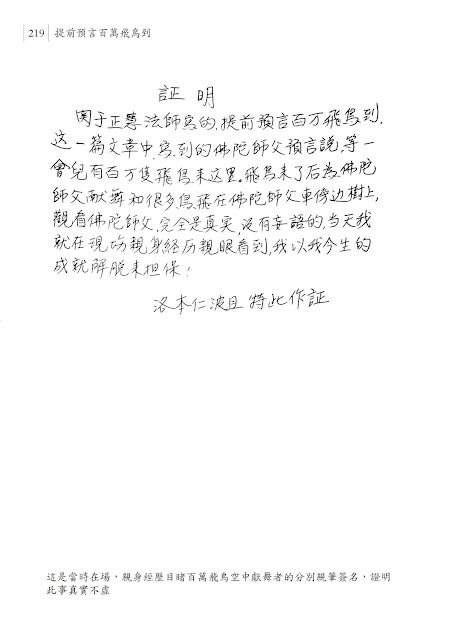 219 提前預言百萬飛鳥到
証明
関于正慧法師寫的,提前預言百万飛鳥到,
这一篇文章中,寫到的佛陀師父預言説,等一
會兒有百万隻飛鳥来这里。飛鳥来了后為佛陀
師父献舞和很多鳥飛在佛陀師父車傍边樹上,
觀看佛陀師父,完全是真実,没有妄語的,当天我
就在現场親身经历親眼看到,我以我今生的
成就解脱来担保!
洛本仁波且 特此作証
這是當時在場,親身經歷目睹百萬飛鳥空中獻舞者的分別親筆簽名,證明
此事真實不虛